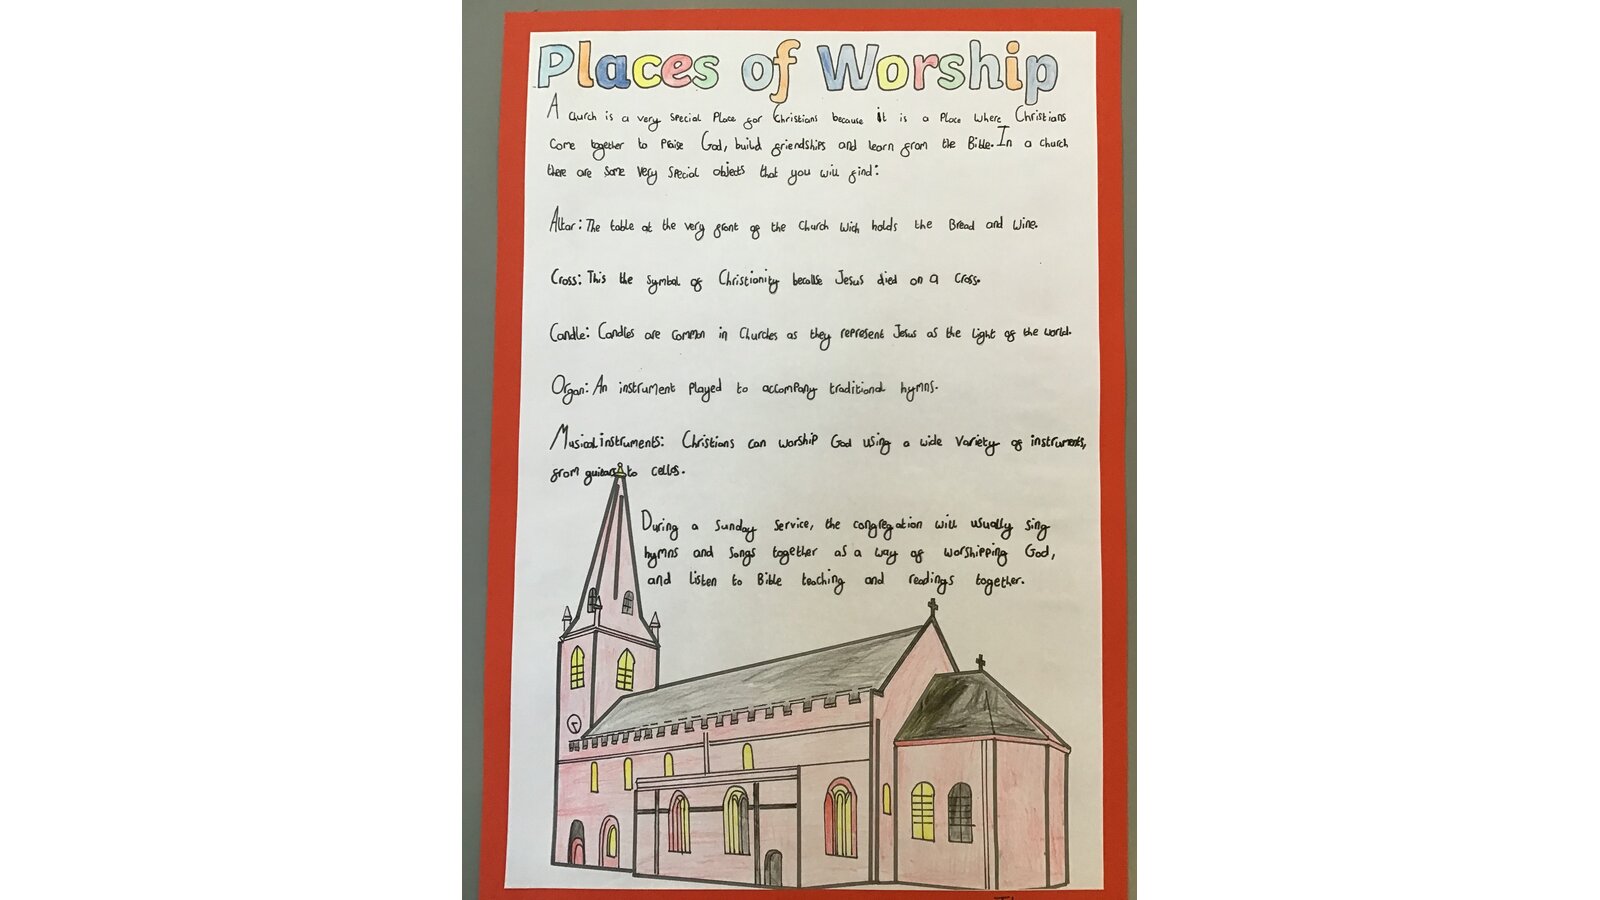 Places of Worship
A church is a very special Place for Christians because it is a Place where Christians
come together to Praise God, build friendships and learn from the Bible. In a church
there are some very special objects that you will find:
Altar: The table at the very front of the church wich holds the Bread and Wine.
Cross: This the symbol of Christianity because Jesus died on a cross.
Candle: Candles are common in Churches as they represent Jesus as the light of the world.
Organ: An instrument played to accompany traditional hymns.
Musical instruments: Christians can worship God using a wide variety of instruments,
from guitars to cellos.
During a Sunday service, the congregation will usually sing
hymns and songs together as a way of worshipping God,
and listen to Bible teaching and readings together.